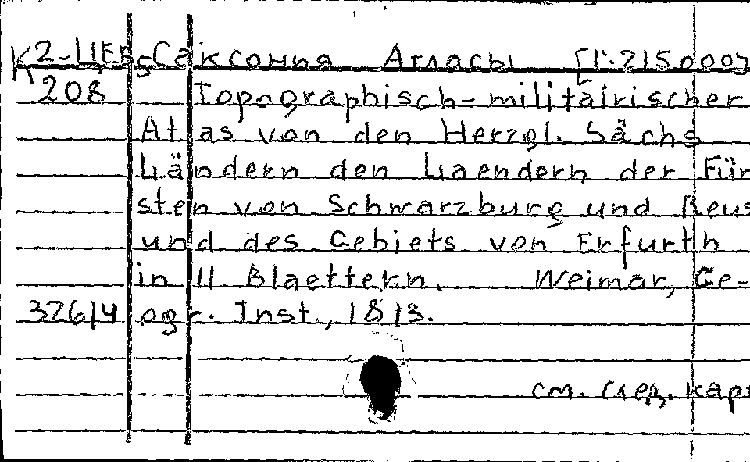 К2-ЦЕВ Саксония Атласы [1:215000]
208 Topographisch-militäirischer
Atlas von den Herzgl. Sächs
Ländern den Laendern der Für
sten von Schwarzburg und Reus
und des Gebiets von Erfurth
in 11 Blaettern. Weimar, Ge-
326/4 ogr. Inst., 1813.
см. след. карт